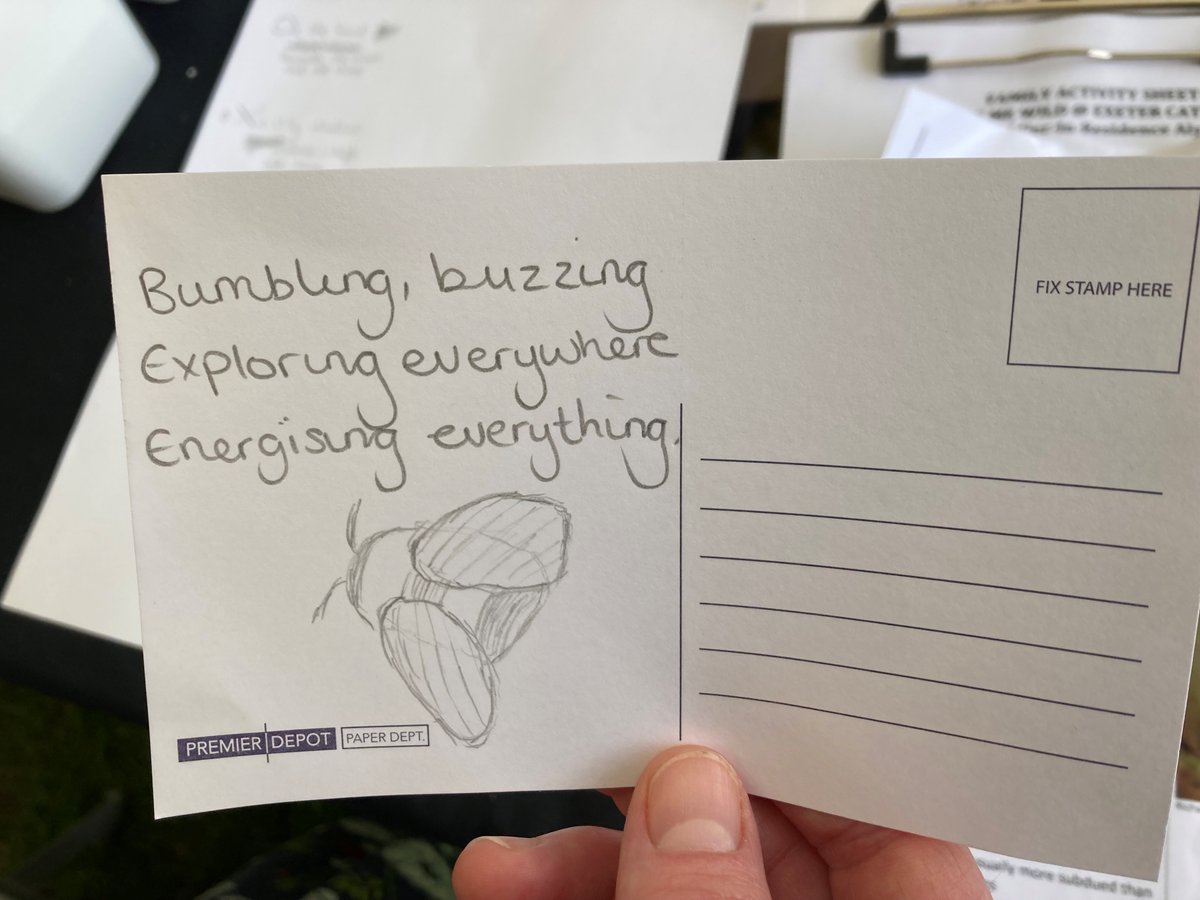 FAMILY ACTIVITY SHEET
WILD @ EXETER CAT
In Residence
Bumbling, buzzing
Exploring everywhere
Energising everything.
FIX STAMP HERE
PREMIER DEPOT PAPER DEPT.
more subdued than